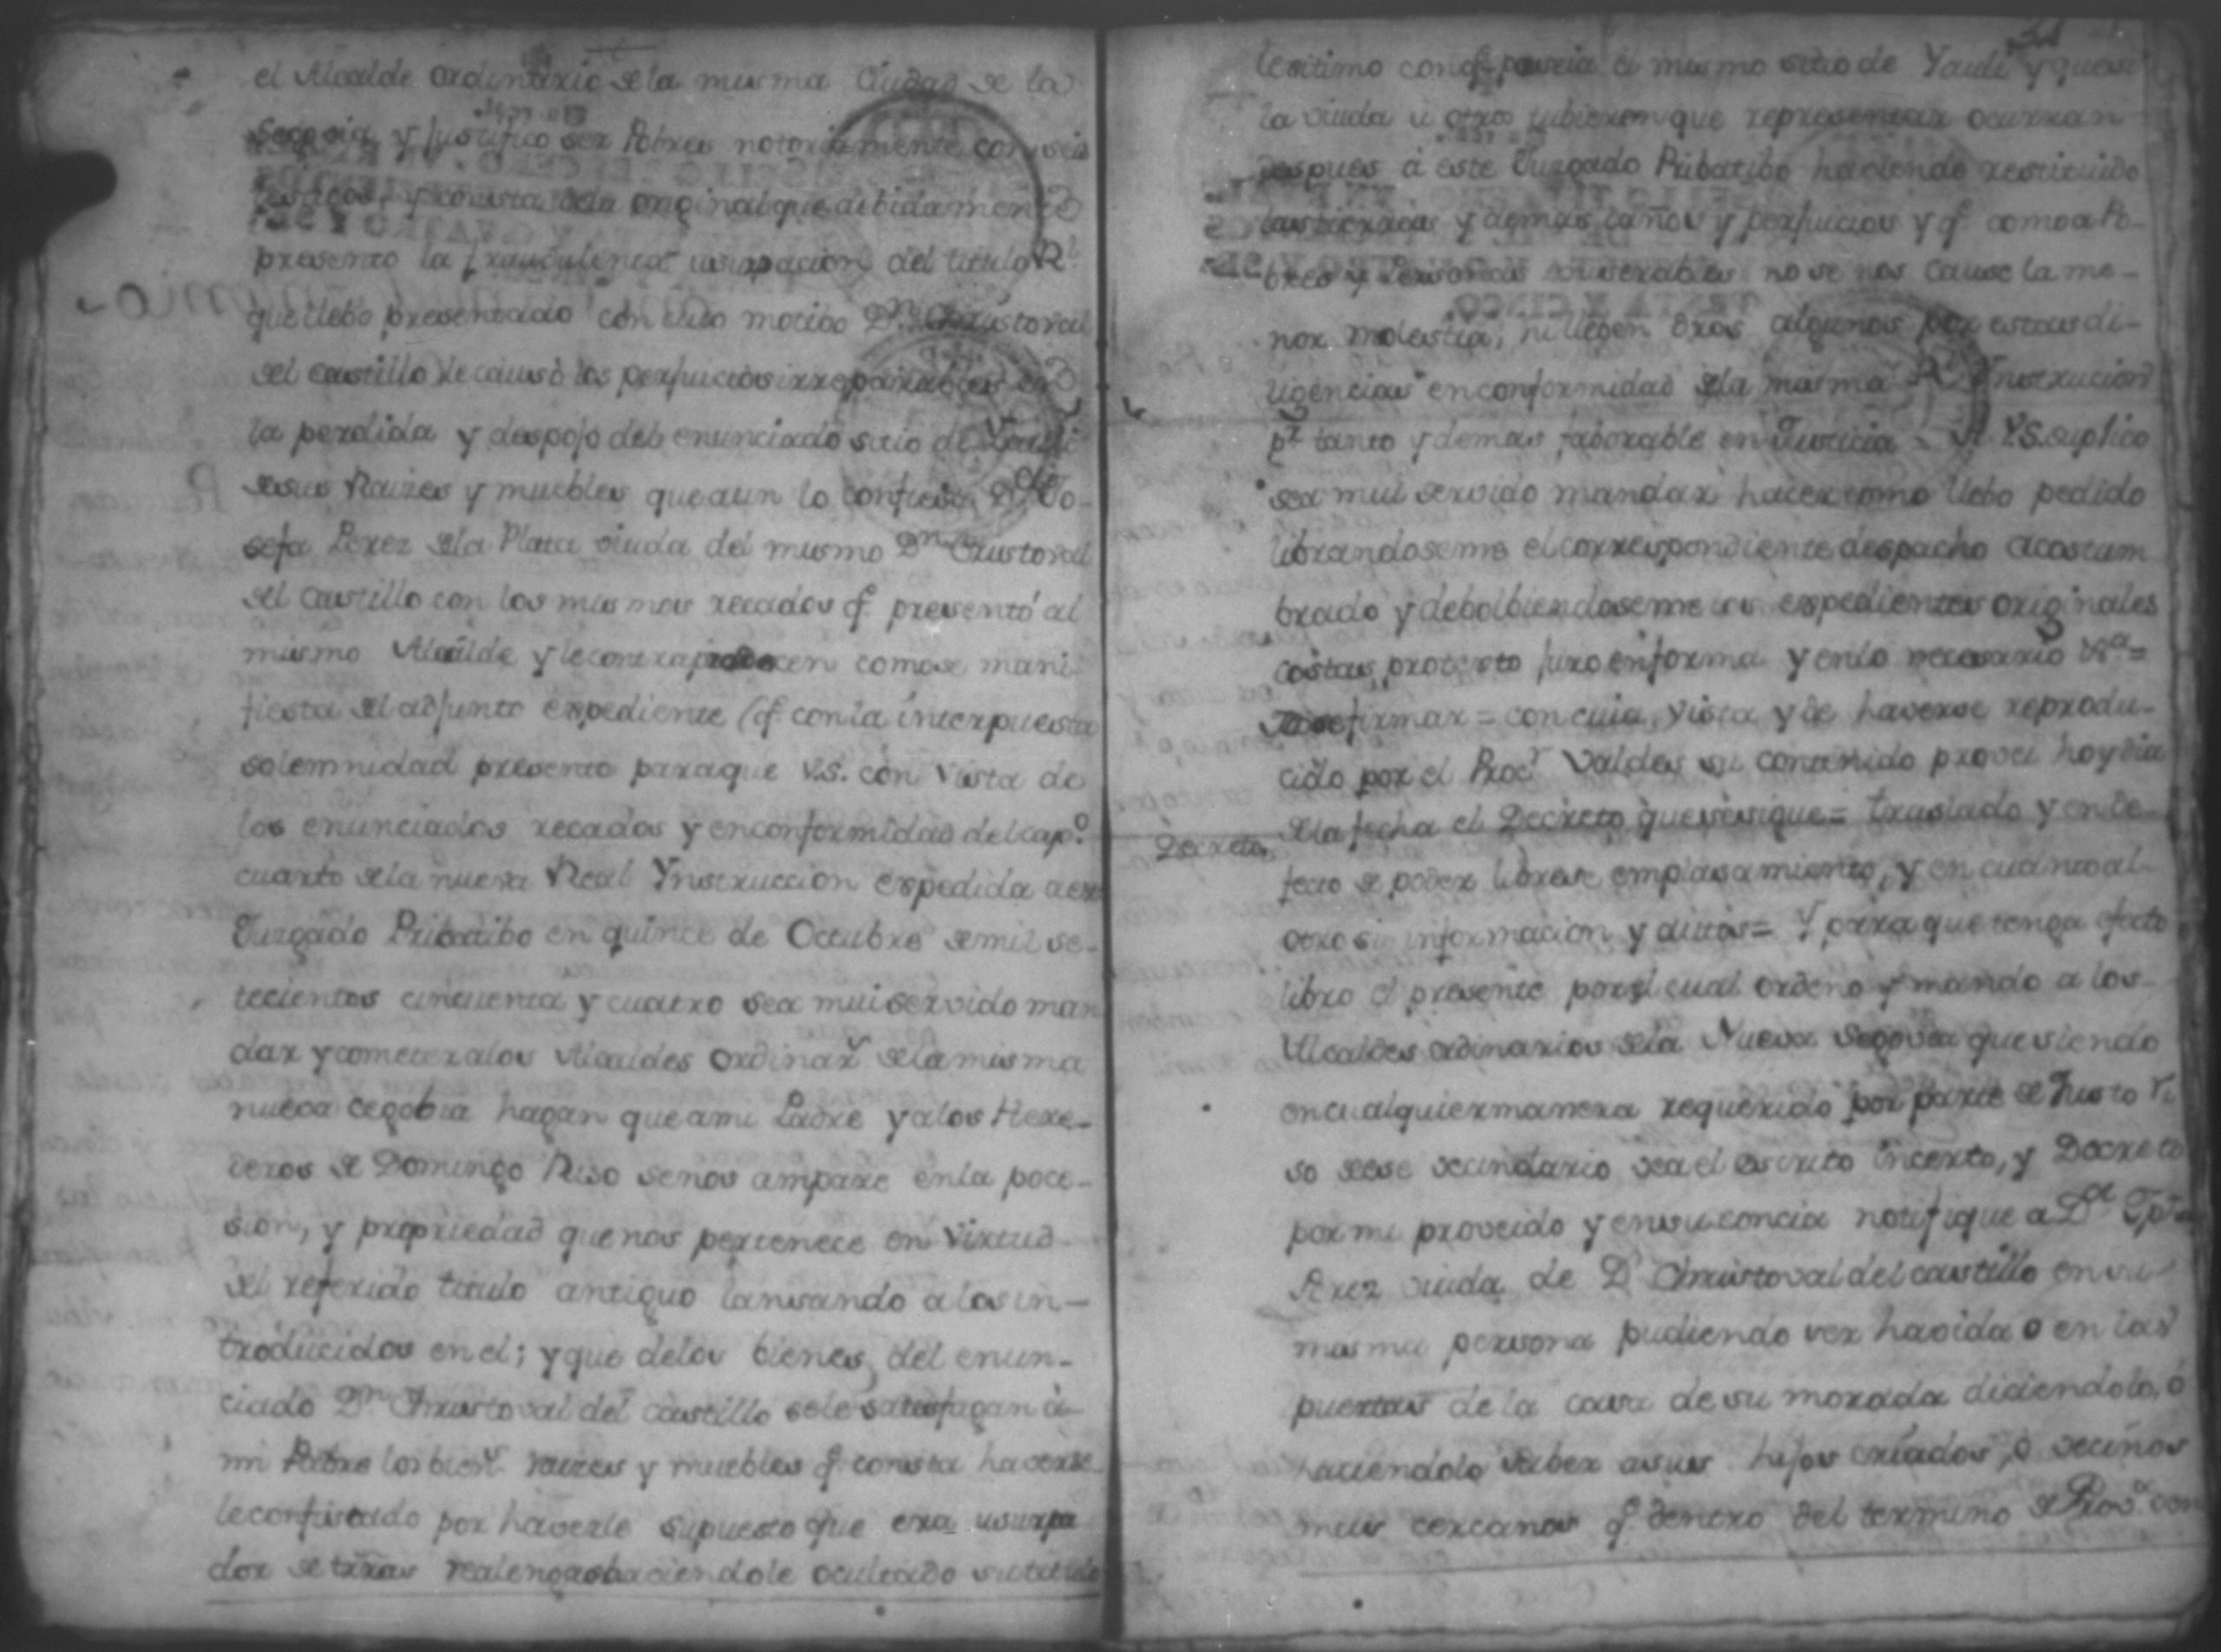 el Alcalde ordinario de la misma Ciudad de la
Segovia y justifico ser Pobres notoriamente con seis
testigos, y consta dela original que debidamente
presento la fraudulenta usurpacion del titulo Rl.
que llebo presentado con cuio motibo Dn. Christoval
del castillo le causò los perjuicios irreparables en
la perdida y despojo del enunciado sitio de Yaudi
desus Raizes y muebles que aun lo confiesa Da. Jo-
sefa Perez dela Plata viuda del mismo Dn. Cristoval
del castillo con los mismos recados q. presentó al
mismo Alcalde y le contraproducen como se mani-
fiesta del adjunto expediente (q. con la interpuesta
solemnidad presento paraque V.S. con vista de
los enunciados recados y enconformidad del capo.
cuarto dela nueva Real Ynstruccion expedida a este
Juzgado Pribatibo en quince de Octubre demil se-
tecientos cincuenta y cuatro sea mui servido man
dar y cometer alos Alcaldes ordinars. dela misma
nueva cegobia hagan que ami Padre y alos Here-
deros de Domingo Riso senos ampare enla poce-
sion, y propriedad que nos pertenece en virtud
del referido titulo antiguo lansando a los in-
troducidos en el; y que delos bienes, del enun-
ciado Dn. Christoval del castillo sele satisfagan à
mi Padre los biens. raizes y muebles q. consta haverse
le confiscado por haverle supuesto que era usurpa
dor de tirras realengas haciendole ocultado su titulo
lexitimo conq. poseia el mismo sitio de Yaudi y que si
la viuda ù otros tubieren que representar ocurran
despues á este Juzgado Pribatibo haciendo restituido
las tierras y demas daños y perjuicios y q. como a Po-
bres y Personas miserables no se nos cause la me-
nor molestia, ni lleben dros algunos por estas di-
ligencias enconformidad dela misma Rl. Ynstrucion
pr. tanto y demas faborable en Justicia = A V.S. suplico
sea mui servido mandar hacer como llebo pedido
librandoseme el correspondiente despacho acostum
brado y debolbiendoseme los expedientes originales
costas, protesto juro enforma y enlo necesario Va. =
No se firmar = con cuia, vista y de haverse reprodu-
cido por el Procr. Valdes su contenido provei hoy dia
dela fecha el Decreto que se sigue = traslado y en de-
Decreto.
fecto de poder librese emplasamiento, y en cuanto al
otro si informacion y autos = Y para que tenga efecto
libro el presente por el cual ordeno y mando a los
Alcaldes ordinarios dela Nueva Segovia que siendo
en cualquier manera requerido por parte de Justo Ri
so dese secundario vea el escrito incerto, y Decreto
por mi proveido y ensu concia notifique a Da.
Perez viuda de Dn. Christoval del castillo en su
misma persona pudiendo ser havida o en las
puertas de la casa de su morada diciendolo, ó
haciendolo saber asus hijos criados, o vecinos
mas cercanos q. dentro del termino de con